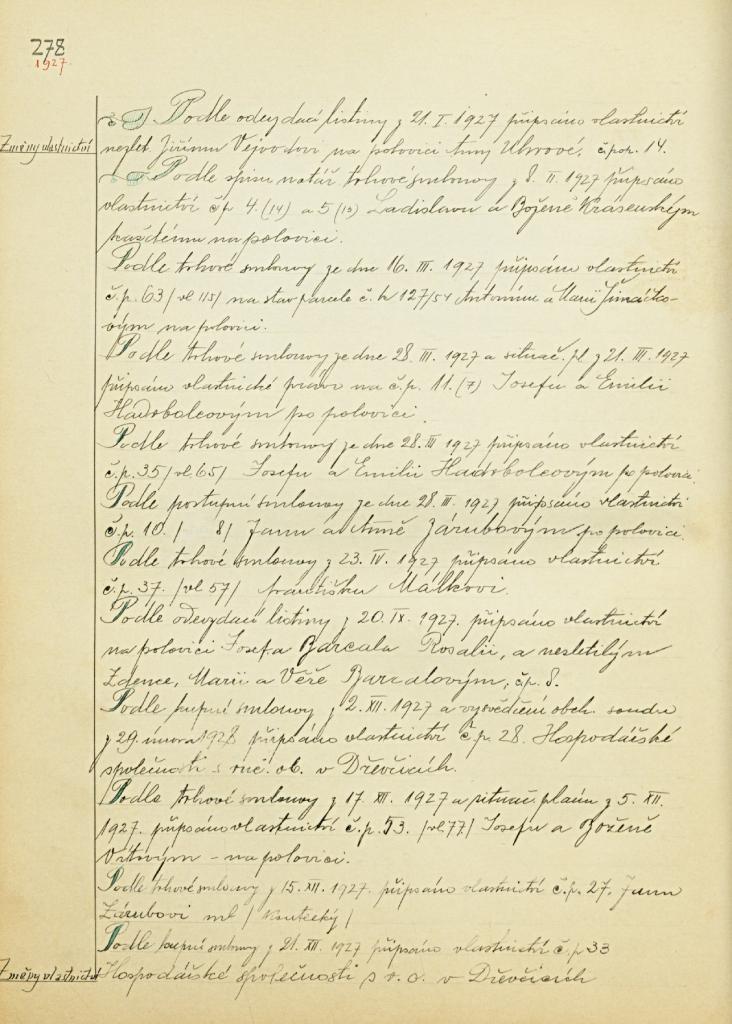 278
1927.
Podle odevzdací listiny z 21. I. 1927 připsáno vlastnictví
Změny vlastnictví
nezlet. Jiřímu Vejvodovi na polovici Anny Uhrové, č. pop. 14.
Podle spisu notář. trhové smlouvy z 8. II. 1927 připsáno
vlastnictví čp. 4. (14) a 5 (13) Ladislavu a Boženě Krásenským
každému na polovici.
Podle trhové smlouvy ze dne 16. III. 1927 připsáno vlastnictví
č.p. 63 / vl 115/ na stav. parcele č. k 127/54 Antonínu a Marii Šimáčko-
vým na polovici.
Podle trhové smlouvy ze dne 28. III. 1927 a situač. pl. z 21. III. 1927
připsáno vlastnické právo na č.p. 11. (7) Josefu a Emilii
Hadrbolcovým po polovici.
Podle trhové smlouvy ze dne 28. III 1927 připsáno vlastnictví
č.p. 35 / vl. 65/ Josefu a Emilii Hadrbolcovým po polovici.
Podle postupní smlouvy ze dne 28. III. 1927 připsáno vlastnictví
č.p. 10. / 8/ Janu a Anně Zárubovým po polovici.
Podle trhové smlouvy z 23. IV. 1927 připsáno vlastnictví
č.p. 37. /vl 57/ Františku Málkovi.
Podle odevzdací listiny z 20. IX. 1927. připsáno vlastnictví
na polovici Josefa Barcala Rosalii, a nezletilým
Zdence, Marii a Věře Barcalovým, čp. 8.
Podle kupní smlouvy z 2. XII. 1927 a vysvědčení obch. soudu
z 29. února 1928 připsáno vlastnictví č.p. 28. Hospodářské
společnosti s ruč. ob. v Dřevčicích.
Podle trhové smlouvy z 17. XII. 1927 a situač plánu z 5. XII.
1927. připsáno vlastnictví č.p. 53. /vl. 77/ Josefu a Boženě
- na polovici.
Podle trhové smlouvy z 15. XII. 1927. připsáno vlastnictví č.p. 27. Janu
Zárubovi ml / Koutecký /
Podle kupní smlouvy z 21. XII. 1927 připsáno vlastnictví č.p 33
Změny vlastnictví
Hospodářské společnosti s r. o. v Dřevčicích